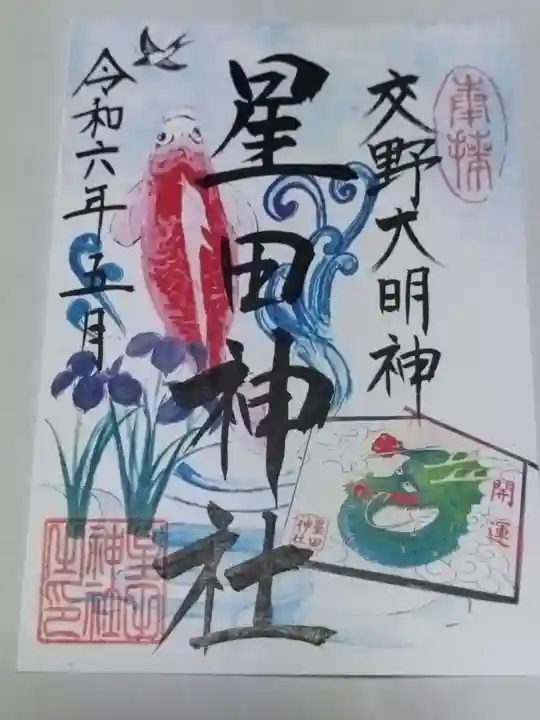 奉拝
交野大明神
星田神社
令和六年五月
開運
星田
神社
星田
神社
之印